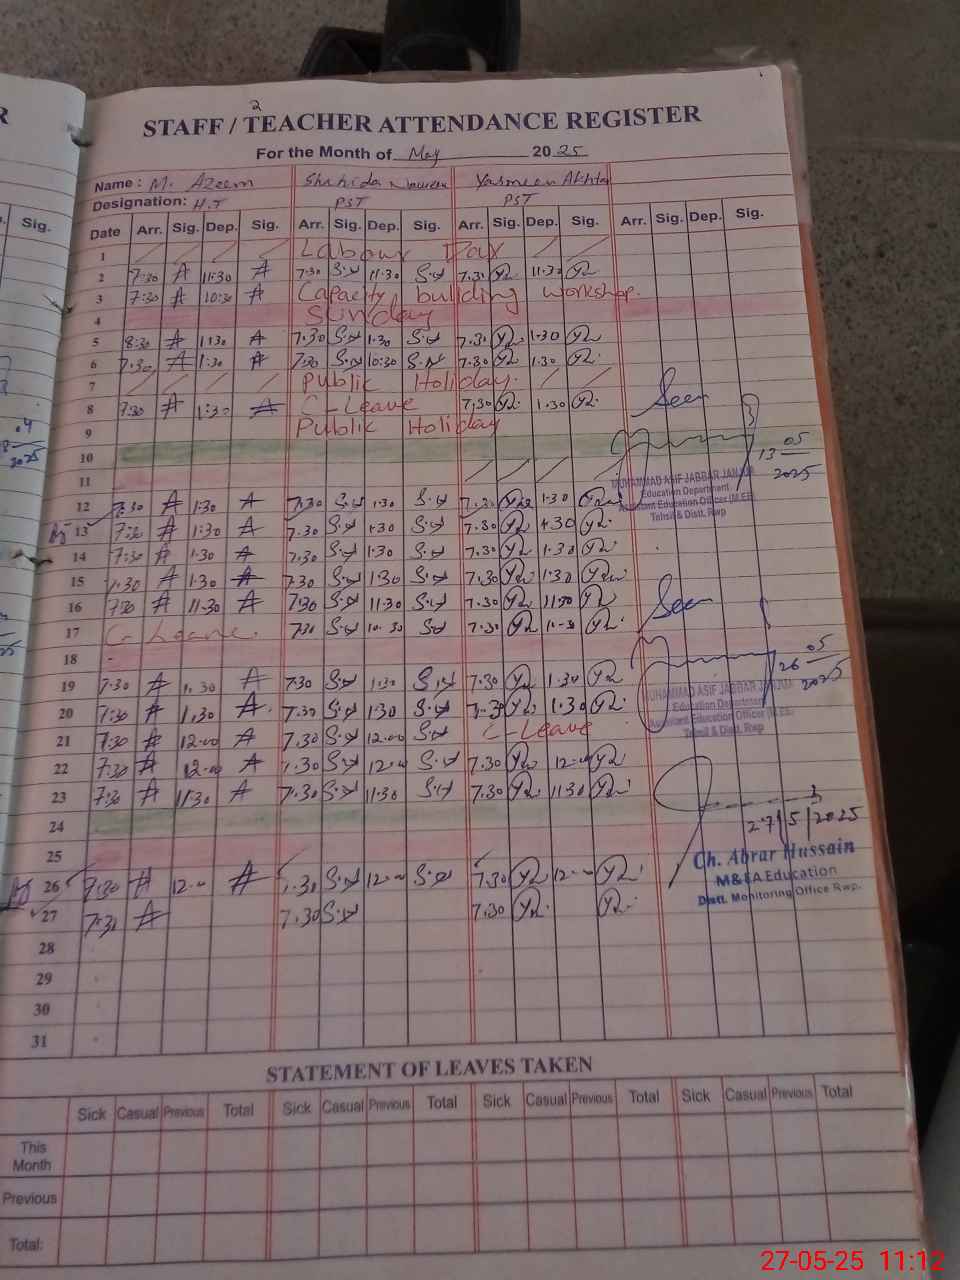 2
STAFF / TEACHER ATTENDANCE REGISTER
For the Month of May 2025
Name : M. Azeem Shahida Nawreen Yasmeen Akhtar
Designation: H.T PST PST
Date Arr. Sig. Dep. Sig. Arr. Sig. Dep. Sig. Arr. Sig. Dep. Sig. Arr. Sig. Dep. Sig.
1 Labour Day
2 7:30 A 11:30 A 7:30 11:30 7.30 11.30
3 7:30 A 10:30 A Capacity building workshop.
4 Sunday
5 8:30 A 1:30 A 7.30 1.30 7.30 1.30
6 7:30 A 1:30 A 7:30 10:30 7.30 1.30
7 Public Holiday.
8 7:30 A 1:30 A C-Leave 7.30 1.30
9 Public Holiday
10
11
12 7:30 A 1:30 A 7.30 1.30 7.30 1.30
13 7:30 A 1:30 A 7.30 1.30 7.30 1.30
14 7:30 A 1.30 A 7.30 1.30 7.30 1.30
15 7.30 A 1.30 A 7.30 1.30 7.30 1.30
16 7:30 A 11.30 A 7.30 11.30 7.30 11.30
17 C-Leave. 7.30 10.30 7.30
18
19 7.30 A 1.30 A 7.30 1.30 7.30 1.30
20 7:30 A 1.30 A. 7.30 1.30 7.30 1.30
21 7:30 A 12.00 A 7.30 12.00 C-Leave
22 7:30 A 12.00 A 7.30 12.00 7.30 12.00
23 7:30 A 11.30 A 7.30 11.30 7.30 11.30
24
25
26 7:30 A 12.00 A 7.30 12.00 7.30 12.00
27 7:30 A 7.30 7.30
28
29
30
31
Seen
13 05
2025
MUHAMMAD ASIF JABBAR JANJUA
Education Department
Assistant Education Officer (M.EE)
Tehsil & Distt. Rwp
Seen
26 05
2025
MUHAMMAD ASIF JABBAR JANJUA
Education Department
Assistant Education Officer (M.EE)
Tehsil & Distt. Rwp
27/5/2025
Ch. Abrar Hussain
M&EA Education
Distt. Monitoring Office Rwp.
STATEMENT OF LEAVES TAKEN
Sick Casual Previous Total Sick Casual Previous Total Sick Casual Previous Total Sick Casual Previous Total
This Month
Previous
Total:
R
Sig.
04
2025
27-05-25 11:12